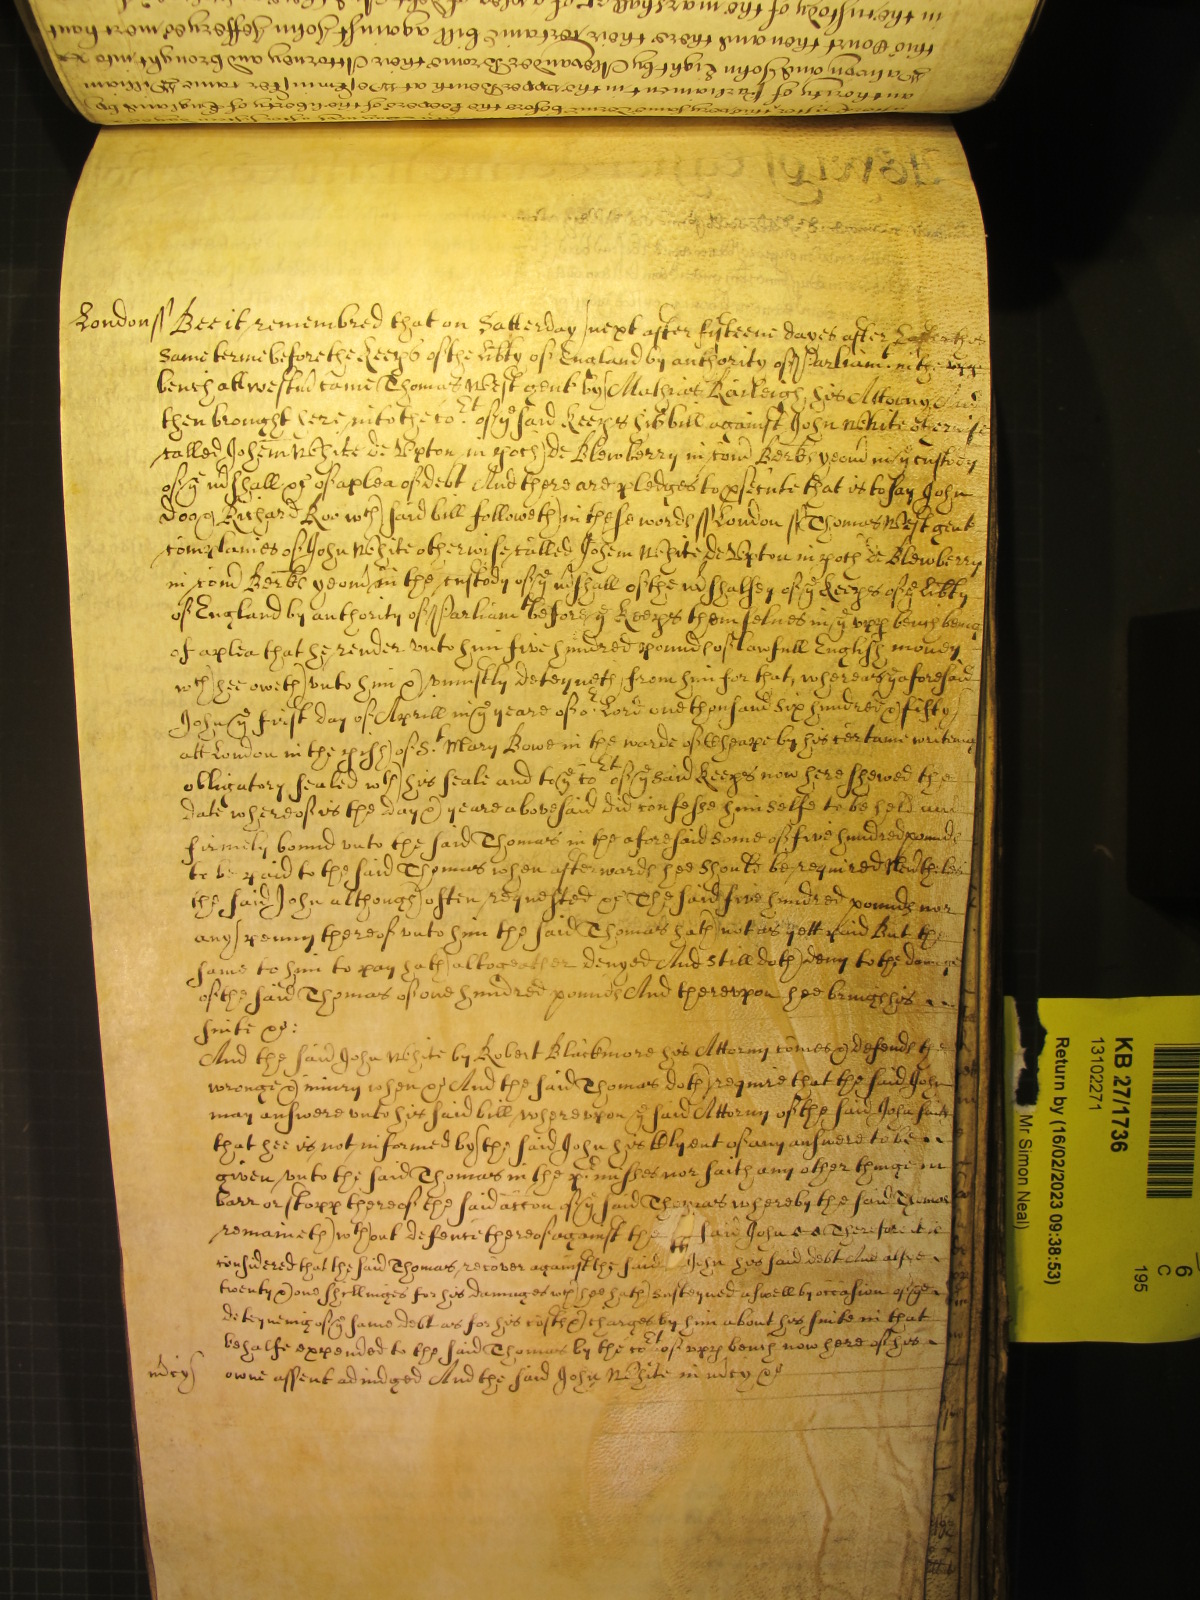 in the custody of the marshall &c of a plea of debt
this Court then and there their certaine bill against John Jefferyes merchant
and John Light by Alexander Browne their Attorney and brought into
authority of Parliament in the upper bench at Westminster came William
London ss Bee it remembred that on Satterday next after fifteene dayes after Easter this
same terme before the Keeps of the libty of England by authority of Parliamt in the upp
bench att westm came Thomas West gent by Mathias Raileigh his Attorny And
then brought here into the cort of ye said Keeps his bill against John White otherwise
called Johem White de Upton in poch de Blewberry in com Berks yeom in ye custody
of ye mshall &c of a plea of debt And there are pledges to psecute that is to say John
Doo & Richard Roo wch said bill followeth in these words ss London ss Thomas West gent
complaines of John White otherwise called Johem White de Upton in poch de Blewberry
in com Berks yeom in the custody of ye mshall of the mshalsey of ye Keeps of ye libty
of England by authority of Parliamt before ye Keeps themselves in ye upp bench being
of a plea that he render unto him five hundred pounds of lawfull English money
wch hee oweth unto him & uniustly deteyneth from him for that, whereas ye aforesaid
John ye first day of Aprill in ye yeare of or Lord one thousand six hundred & fifty
att London in the pish of St Mary Bowe in the warde of Cheape by his certaine writeing
obligatory sealed wth his seale and to ye cort of ye said Keeps now here shewed the
date whereof is the day & yeare abovesaid did confesse himselfe to be held and
firmely bound unto the said Thomas in the aforesaid some of five hundred pounds
to be paid to the said Thomas when afterwards hee should be required Neverthelesse
the said John although often requested &c The said five hundred pounds nor
any penny thereof unto him the said Thomas hath not as yett paid But the
same to him to pay hath altogeather denyed And still doth deny to the damage
of the said Thomas of one hundred pounds And thereupon hee brings his
suite &c:
And the said John White by Robert Blackmore his Attorny comes & defends the
wronge & iniury when &c And the said Thomas doth require that the said John
may answere unto his said bill whereupon ye said Attorny of the said John saith
that hee is not informed by the said John his Clyent of any answere to be
given unto the said Thomas in the pmisses nor saith any other thinge in
barr or stopp thereof the said accon of ye said Thomas whereby the said Thomas
remaineth wthout defence thereof against the said John &c Therefore it is
considered that the said Thomas recover against the said John his said debt And alsoe
twenty & one shillinges for his damages wch hee hath susteyned aswell by occasion of ye
deteyneing of ye same debt as for his costs & charges by him about his suite in that
behalfe expended to the said Thomas by the cort of upp bench now here of his
mcy owne assent adiudged And the said John White in mcy &c
KB 27/1736
13102271
Return by (16/02/2023 09:38:53)
Mr Simon Neal
6
C
195